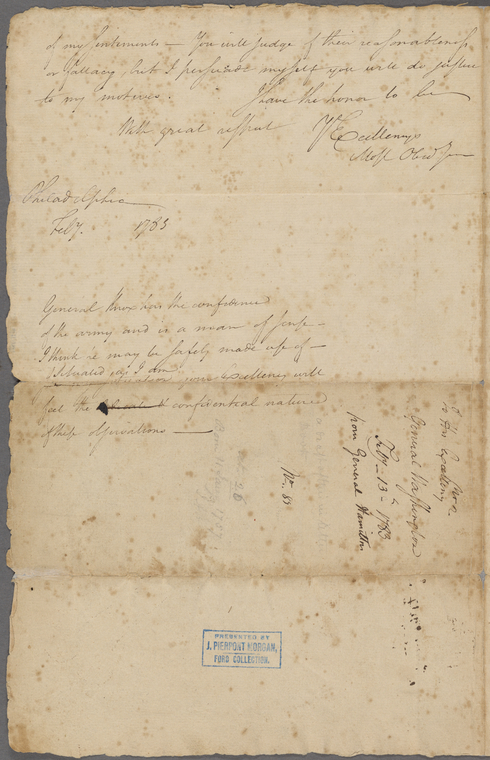 of my sentiments — You will judge of their reasonableness
or fallacy, but I persuade myself you will do justice
to my motives. I have the honor to be
With great respect Yr Excellency's
Most Obed Ser
Philadelphia
Feby. 1783
General Knox has the confidence
of the army and is a man of sense —
I think he may be safely made use of —
Situated as I am
your excellency will
feel the confidential nature
of these observations —
To His Excellency
General Washington
Feby— 13th— 1783
from General Hamilton
PRESENTED BY
J. PIERPONT MORGAN,
FORD COLLECTION.